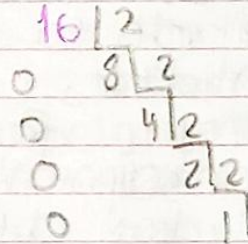 16 2
0 8 2
0 4 2
0 2 2
0 1